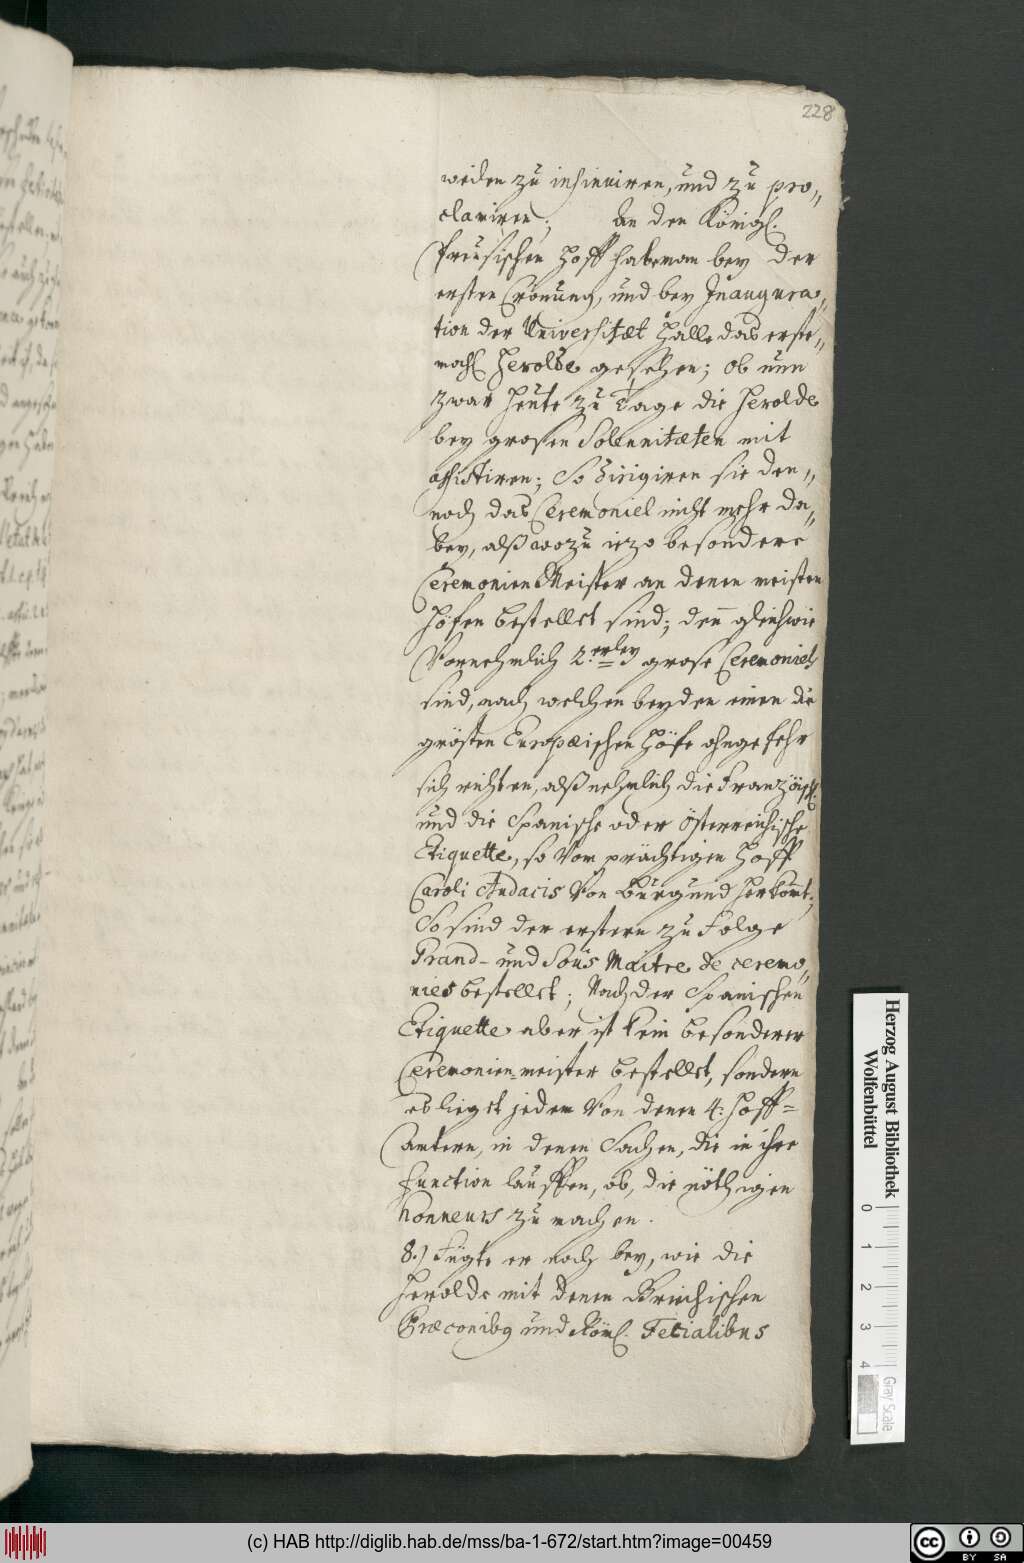 228
werden zu insinuiren, und zu pro„
clamiren; An den Königl.
Preusischen Hoff habe man bey der
ersten Crönung, und bey Inaugura„
tion der Universitæt Halle das erste„
mahl Herolde gesehen; ob nun
zwar heute zu Tage die Herolde
bey grosen Solennitæten mit
assistiren; So dirigiren sie den„
noch das Ceremoniel nicht mehr da„
bey, alß wozu izo besondere
Ceremonien Meister an denen meisten
Höfen bestellet sind; den̄ gleichwie
Vornehmlich 2.erley grose Ceremoniels
sind, nach welchen beyden einen die
grösten Europæischen Höfe ohngefehr
sich richten, alß nehmlich die Französch.
und die Spanische oder Österreichische
Etiquette, so vom prächtigen Hoff
Caroli Audacis von Burgund herkom̄t;
So sind der erstern zu Folge
Grand- und Sous Maitre de ceremo„
nies bestellet; Nach der Spanischen
Etiquette aber ist kein besonderer
Ceremonien-meister bestellet, sondern
es lieget jedem von denen 4. Hoff=
ämtern, in denen Sachen, die in ihre
function lauffen, ob, die nöthigen
honneurs zu machen.
8.) Fügte er noch bey, wie die
Herolde mit denen Griechischen
Præconibq und Röml. Fecialibus
Herzog August Bibliothek
Wolfenbüttel
0 1 2 3 4
Gray Scale
(c) HAB http://diglib.hab.de/mss/ba-1-672/start.htm?image=00459
cc BY SA